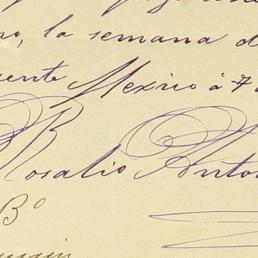 no, la semana d
ente Mexico á 7
Rosalio Anto
Bº